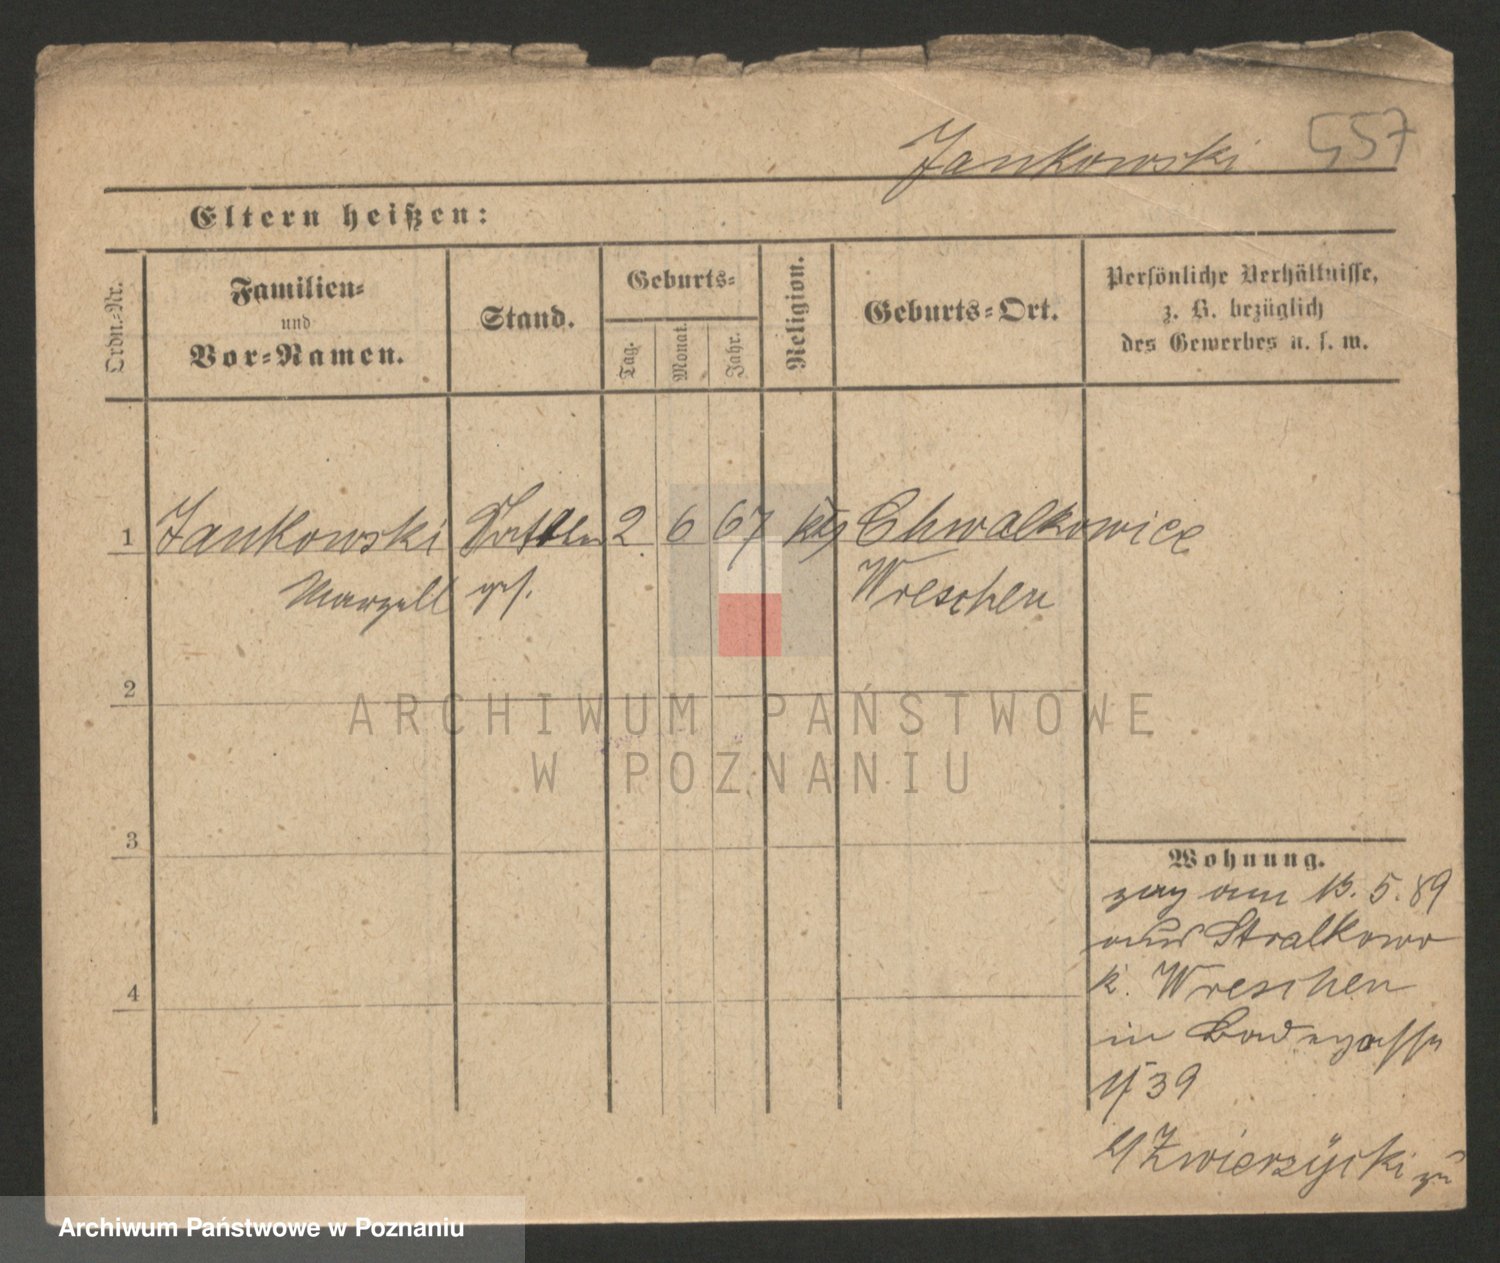 Jankowski 557
Eltern heißen:
Ordn.-Nr.
Familien-
und
Vor-Namen.
Stand.
Geburts-
Tag.
Monat.
Jahr.
Religion.
Geburts-Ort.
Persönliche Verhältnisse,
z. B. bezüglich
des Gewerbes u. s. w.
1 Jankowski Sattler 2 6 67 kth Chwalkowice
Marzell ges. Wreschen
2
3
4
Wohnung.
zug am 13. 5. 89
aus Stralkowo
k. Wreschen
in
39
b/ Zwierzycki
ARCHIWUM PAŃSTWOWE
W POZNANIU
Archiwum Państwowe w Poznaniu